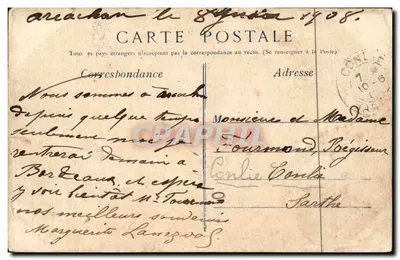 arcachon le 8 1908.
CARTE POSTALE
Tous les pays étrangers n'acceptent pas la correspondance au recto. (Se renseigner à la Poste).
Correspondance
Adresse
Nous sommes à
depuis quelque temps
seulement
rentrerai demain à
Bordeaux, et espère
y voir bientôt Mr
nos meilleurs souvenirs
Marguerite
Monsieur et Madame
Fourmond, Régisseur
Conlie Conlie
Sarthe